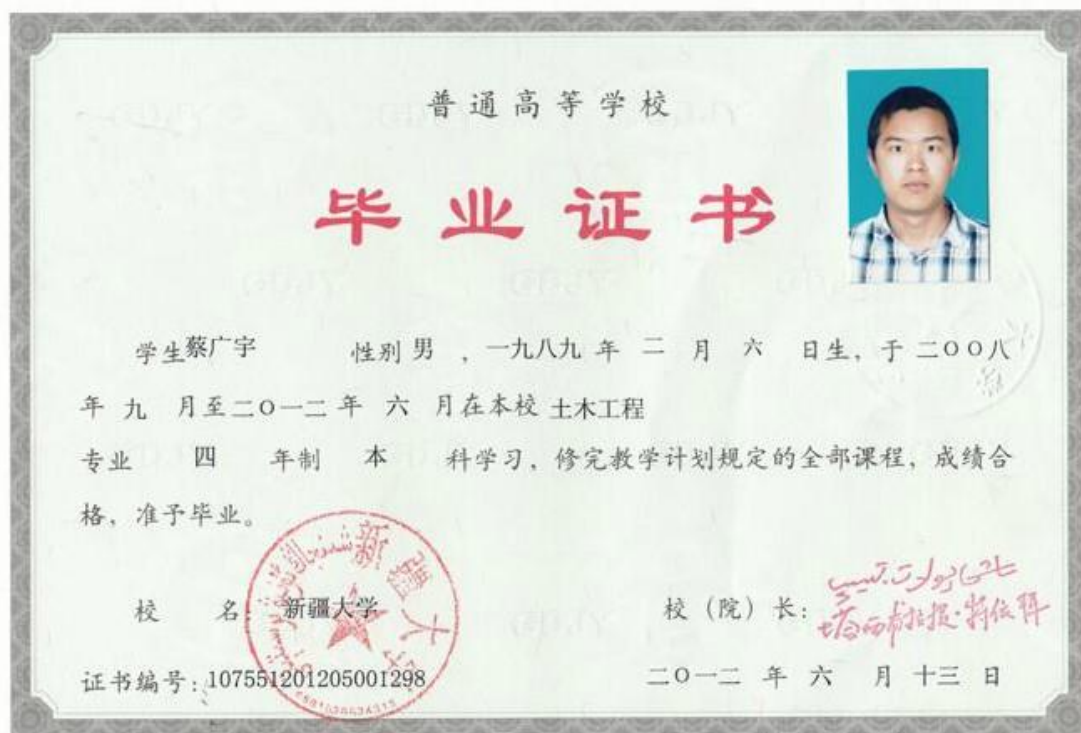 普通高等学校
毕业证书
学生蔡广宇 性别 男 ，一九八九 年 二 月 六 日生，于 二〇〇八
年 九 月至二〇一二 年 六 月在本校 土木工程
专业 四 年制 本 科学习，修完教学计划规定的全部课程，成绩合
格，准予毕业。
校 名：新疆大学
新疆大学
校（院）长：
证书编号：107551201205001298
二〇一二 年 六 月 十三 日